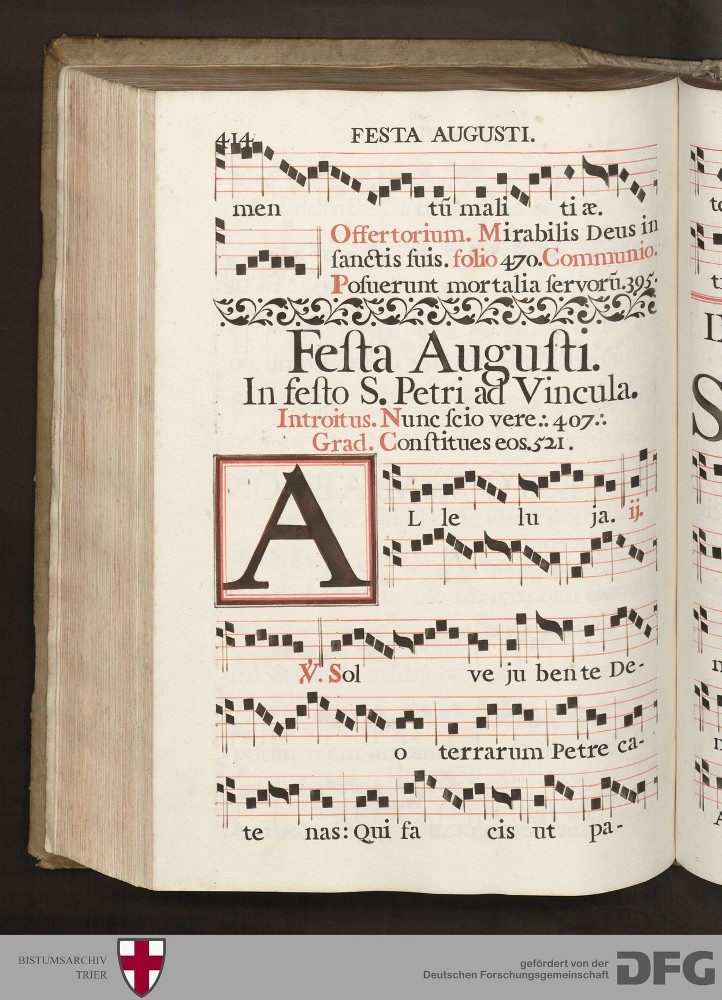 414. FESTA AUGUSTI.
men tũ mali tiæ.
Offertorium. Mirabilis Deus in
ſanctis ſuis. folio 470. Communio.
Poſuerunt mortalia ſervorũ. 395.
Feſta Auguſti.
In feſto S. Petri ad Vincula.
Introitus. Nunc ſcio vere .: 407 .:
Grad. Conſtitues eos. 521.
A L le lu ja. ij.
℣. Sol ve ju bente De-
o terrarum Petre ca-
te nas: Qui fa cis ut pa-
BISTUMSARCHIV
TRIER
gefördert von der
Deutschen Forschungsgemeinschaft
DFG